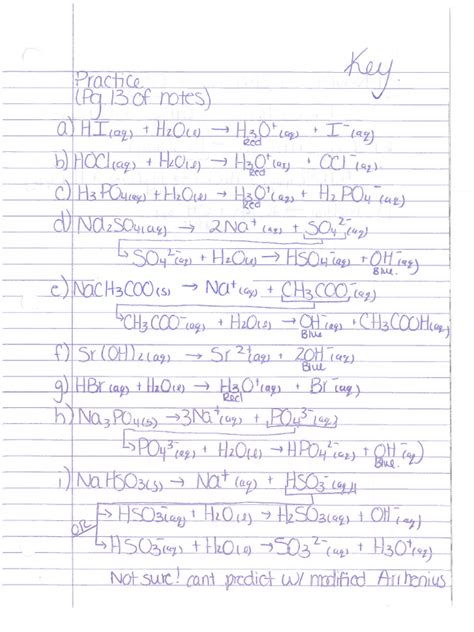 Key.
Practice
(Pg 13 of notes)
a) HI(aq) + H2O(l) → H3O+(aq) + I-(aq)
Red
b) HOCl(aq) + H2O(l) → H3O+(aq) + OCl-(aq).
Red
c) H3PO4(aq) + H2O(l) → H3O+(aq) + H2PO4-(aq)
Red
d) Na2SO4(aq) → 2Na+(aq) + SO4 2-(aq)
SO4 2-(aq) + H2O(l) → HSO4-(aq) + OH-(aq)
Blue.
e) NaCH3COO(s) → Na+(aq) + CH3COO-(aq)
CH3COO-(aq) + H2O(l) → OH-(aq) + CH3COOH(aq)
Blue
f) Sr(OH)2(aq) → Sr2+(aq) + 2OH-(aq)
Blue
g) HBr(aq) + H2O(l) → H3O+(aq) + Br-(aq)
Red
h) Na3PO4(s) → 3Na+(aq) + PO4 3-(aq)
PO4 3-(aq) + H2O(l) → HPO4 2-(aq) + OH-(aq)
Blue.
i) NaHSO3(s) → Na+(aq) + HSO3-(aq)
HSO3-(aq) + H2O(l) → H2SO3(aq) + OH-(aq)
OR
HSO3-(aq) + H2O(l) → SO3 2-(aq) + H3O+(aq)
Not sure! cant predict w/ modified Arrhenius